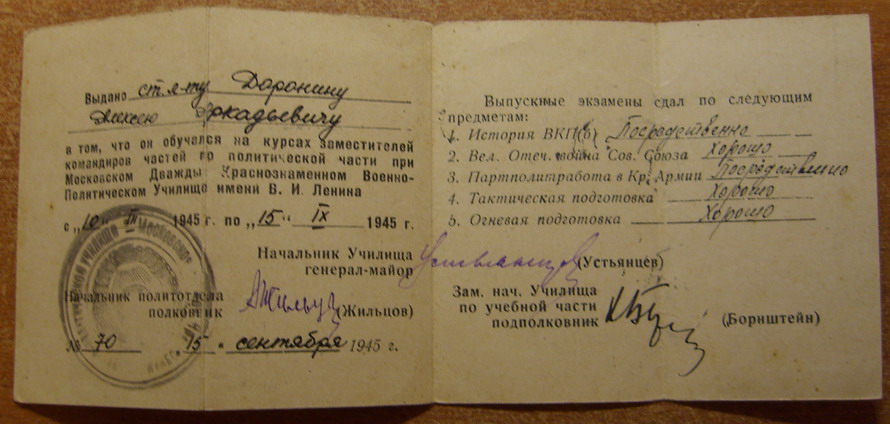 Выдано ст. л-ту Доронину
Алексею Аркадьевичу
в том, что он обучался на курсах заместителей
командиров частей по политической части при
Московском Дважды Краснознаменном Военно-
Политическом Училище имени В. И. Ленина
с „10“ III 1945 г. по „15“ IX 1945 г.
Начальник Училища
генерал-майор (Устьянцев)
Начальник политотдела
полковник (Жильцов)
№ 70 „15“ сентября 1945 г.
Выпускные экзамены сдал по следующим
предметам:
1. История ВКП(б) Посредственно
2. Вел. Отеч. война Сов. Союза Хорошо
3. Партполитработа в Кр. Армии Посредственно
4. Тактическая подготовка Хорошо
5. Огневая подготовка Хорошо
Зам. нач. Училища
по учебной части
подполковник (Борнштейн)